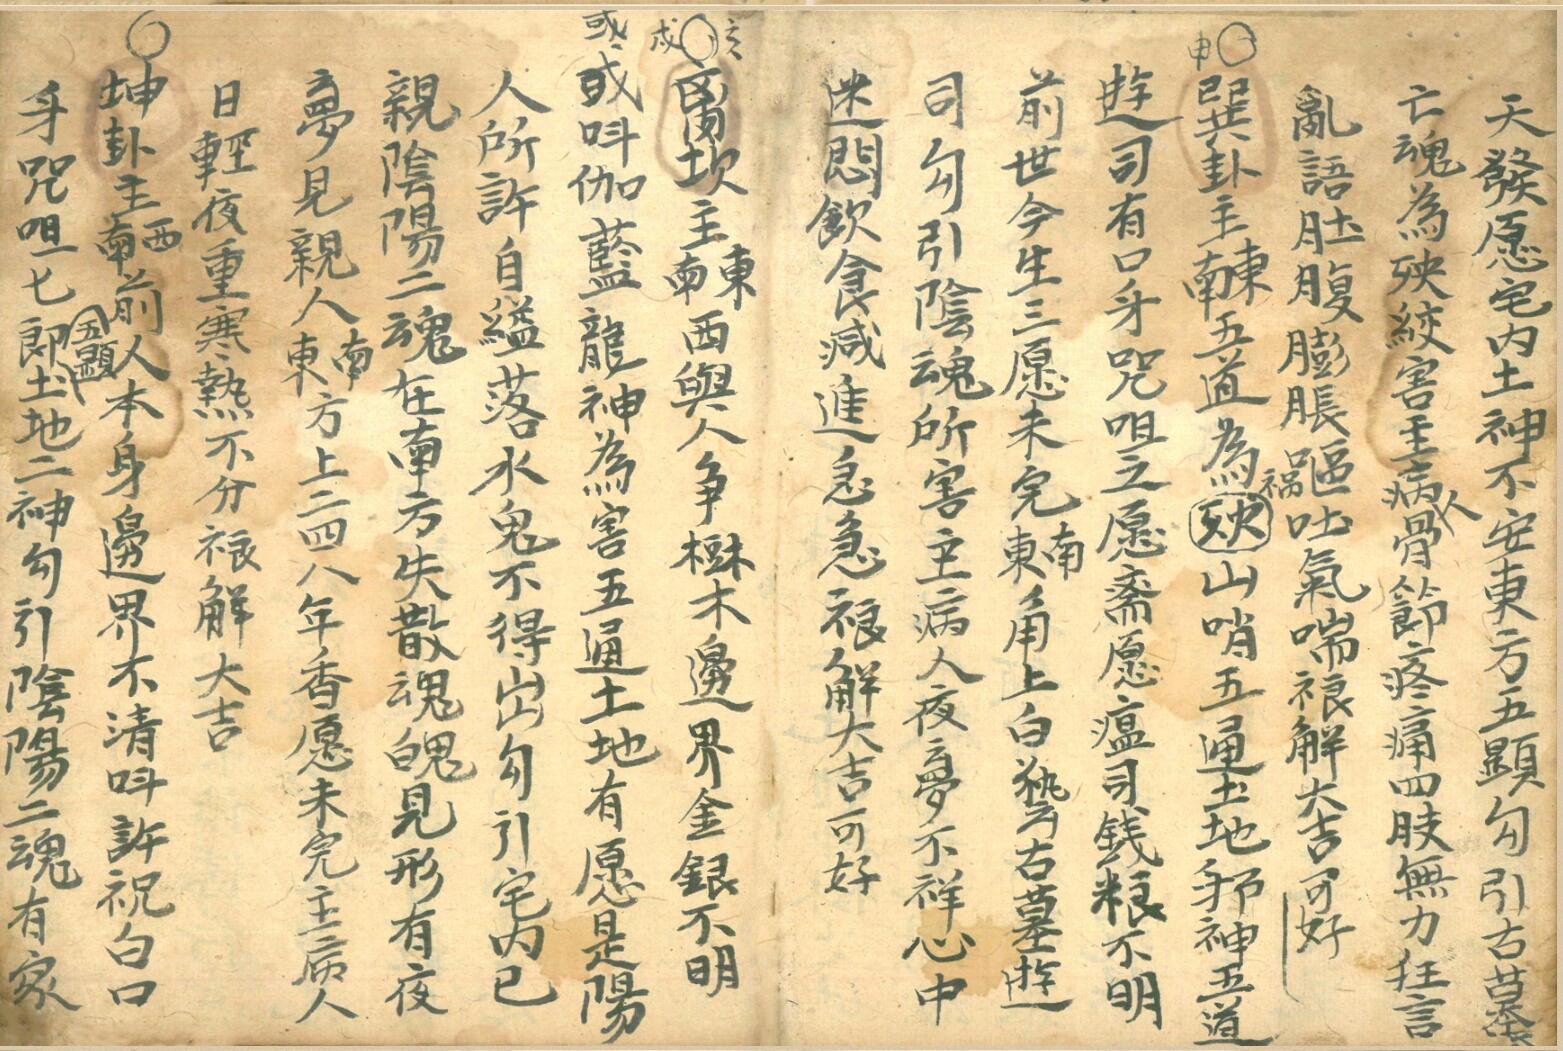 天發愿宅內土神不安東方五顯勾引古墓
亡魂為殃絞害主病人骨節疼痛四肢無力狂言
亂語肚腹膨脹嘔吐氣喘禳解大吉可好
申
巽卦主東南五道為禍殃山哨五通土地邪神五道
遊司有口牙咒咀立愿斋愿瘟司钱粮不明
前世今生三愿未完東南角上白塋古墓遊
司勾引陰魂所害主病人夜夢不祥心中
迷悶飲食減進急急禳解大吉可好
亥
戌
离坎主東南西與人争樹木邊界金銀不明
或
或呌伽藍龍神為害五通土地有愿是陽
人所許自縊落水鬼不得出勾引宅内已
親陰陽二魂在南方失散魂魄見形有夜
夢見親人東南方上二四八年香愿未完主病人
日輕夜重寒熱不分禳解大吉
坤卦主西南前人本身邊界不清呌許祝白口
牙咒咀七郎五顯土地二神勾引陰陽二魂有家